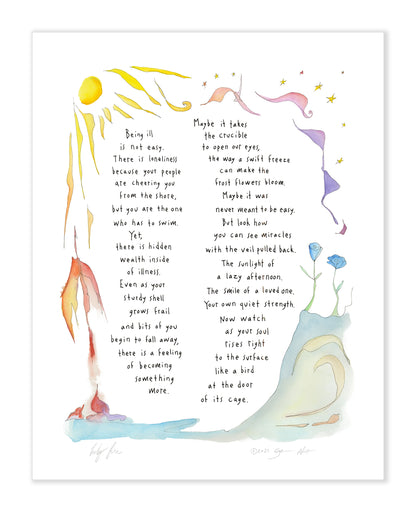 Being ill
is not easy.
There is loneliness
because your people
are cheering you
from the shore,
but you are the one
who has to swim.
Yet,
there is hidden
wealth inside
of illness.
Even as your
sturdy shell
grows frail
and bits of you
begin to fall away,
there is a feeling
of becoming
something
more.
Maybe it takes
the crucible
to open our eyes,
the way a swift freeze
can make the
frost flowers bloom.
Maybe it was
never meant to be easy.
But look how
you can see miracles
with the veil pulled back.
The sunlight of
a lazy afternoon.
The smile of a loved one.
Your own quiet strength.
Now watch
as your soul
rises right
to the surface
like a bird
at the door
of its cage.